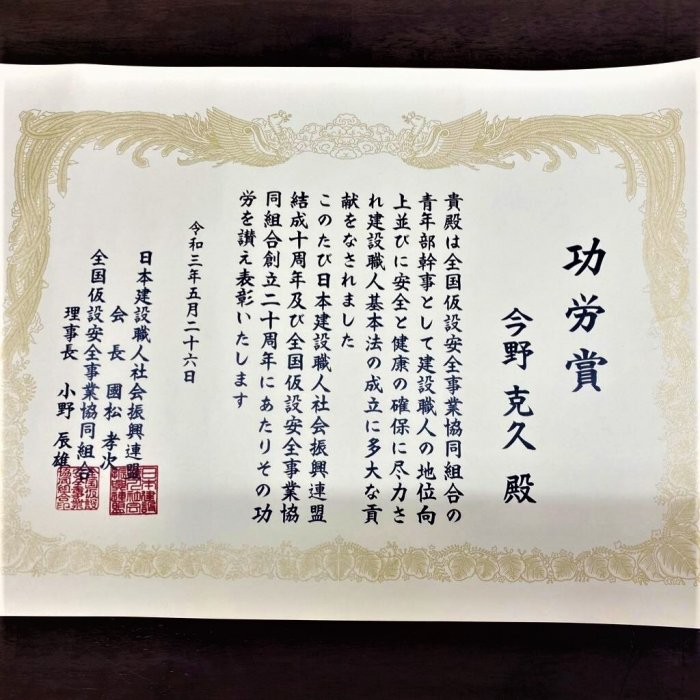 功労賞
今野 克久 殿
貴殿は全国仮設安全事業協同組合の
青年部幹事として建設職人の地位向
上並びに安全と健康の確保に尽力さ
れ建設職人基本法の成立に多大な貢
献をなされました
このたび日本建設職人社会振興連盟
結成十周年及び全国仮設安全事業協
同組合創立二十周年にあたりその功
労を讃え表彰いたします
令和三年五月二十六日
日本建設職人社会振興連盟
会長 國松 孝次
全国仮設安全事業協同組合
理事長 小野 辰雄